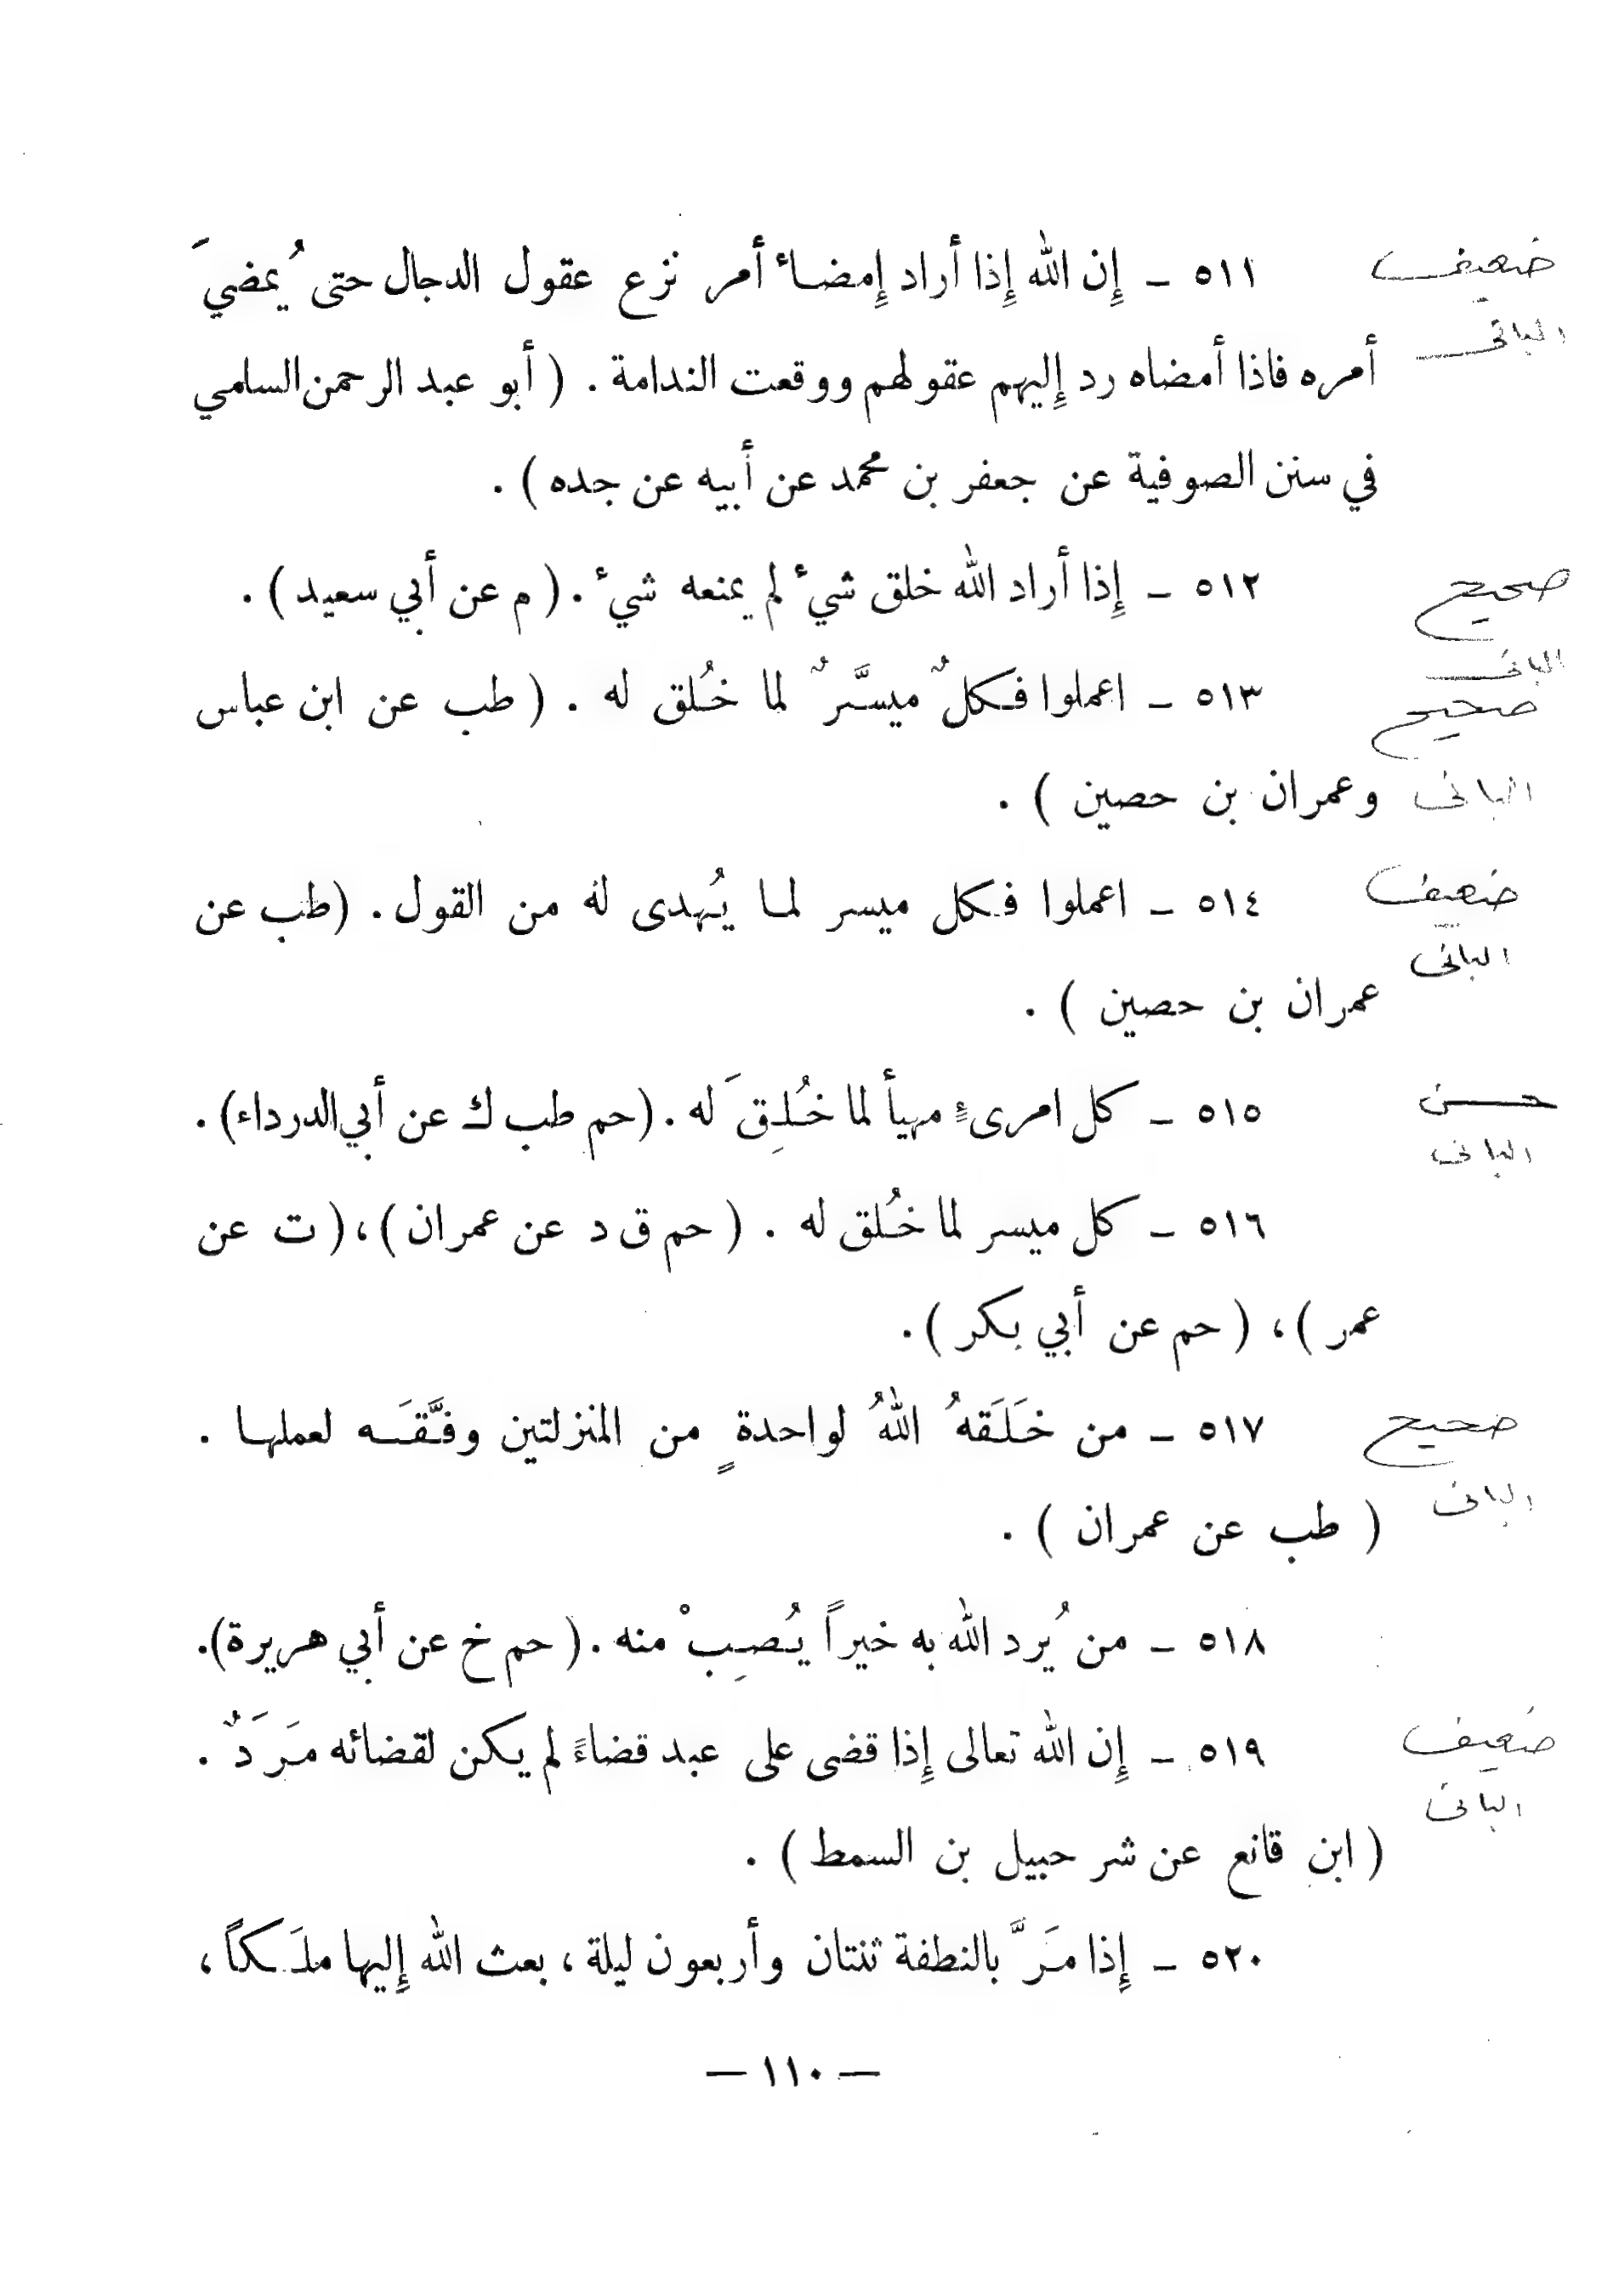 ضعيف
٥١١ – إِن الله إِذا أراد إِمضاءَ أمر نزع عقول الدجال حتى يُمضيَ
البانى
أمره فاذا أمضاه رد إِليهم عقولهم ووقعت الندامة . ( أبو عبد الرحمن السامي
في سنن الصوفية عن جعفر بن محمد عن أبيه عن جده ) .
صحيح
٥١٢ – إِذا أراد الله خلق شيءٍ لم يمنعه شيءٌ . ( م عن أبي سعيد ) .
البانى
صحيح
٥١٣ – اعملوا فكلٌ ميسَّرٌ لما خُلق له . ( طب عن ابن عباس
البانى
وعمران بن حصين ) .
ضعيف
٥١٤ – اعملوا فكل ميسر لما يُهدى له من القول . (طب عن
البانى
عمران بن حصين ) .
حسن
٥١٥ – كل امرىءٍ مهيأ لما خُلِقَ له . (حم طب ك عن أبي الدرداء) .
البانى
٥١٦ – كل ميسر لما خُلق له . ( حم ق د عن عمران ) ، ( ت عن
عمر ) ، ( حم عن أبي بكر ) .
صحيح
٥١٧ – من خَلَقَهُ اللهُ لواحدةٍ من المنزلتين وفَّقَه لعملها .
البانى
( طب عن عمران ) .
٥١٨ – من يُرد الله به خيراً يُصِبْ منه . ( حم خ عن أبي هريرة) .
ضعيف
٥١٩ – إِن الله تعالى إِذا قضى على عبد قضاءً لم يكن لقضائه مَرَدٌ .
البانى
( ابن قانع عن شرحبيل بن السمط ) .
٥٢٠ – إِذا مَرَّ بالنطفة ثنتان وأربعون ليلة ، بعث الله إِليها ملَكاً ،
— ١١٠ —